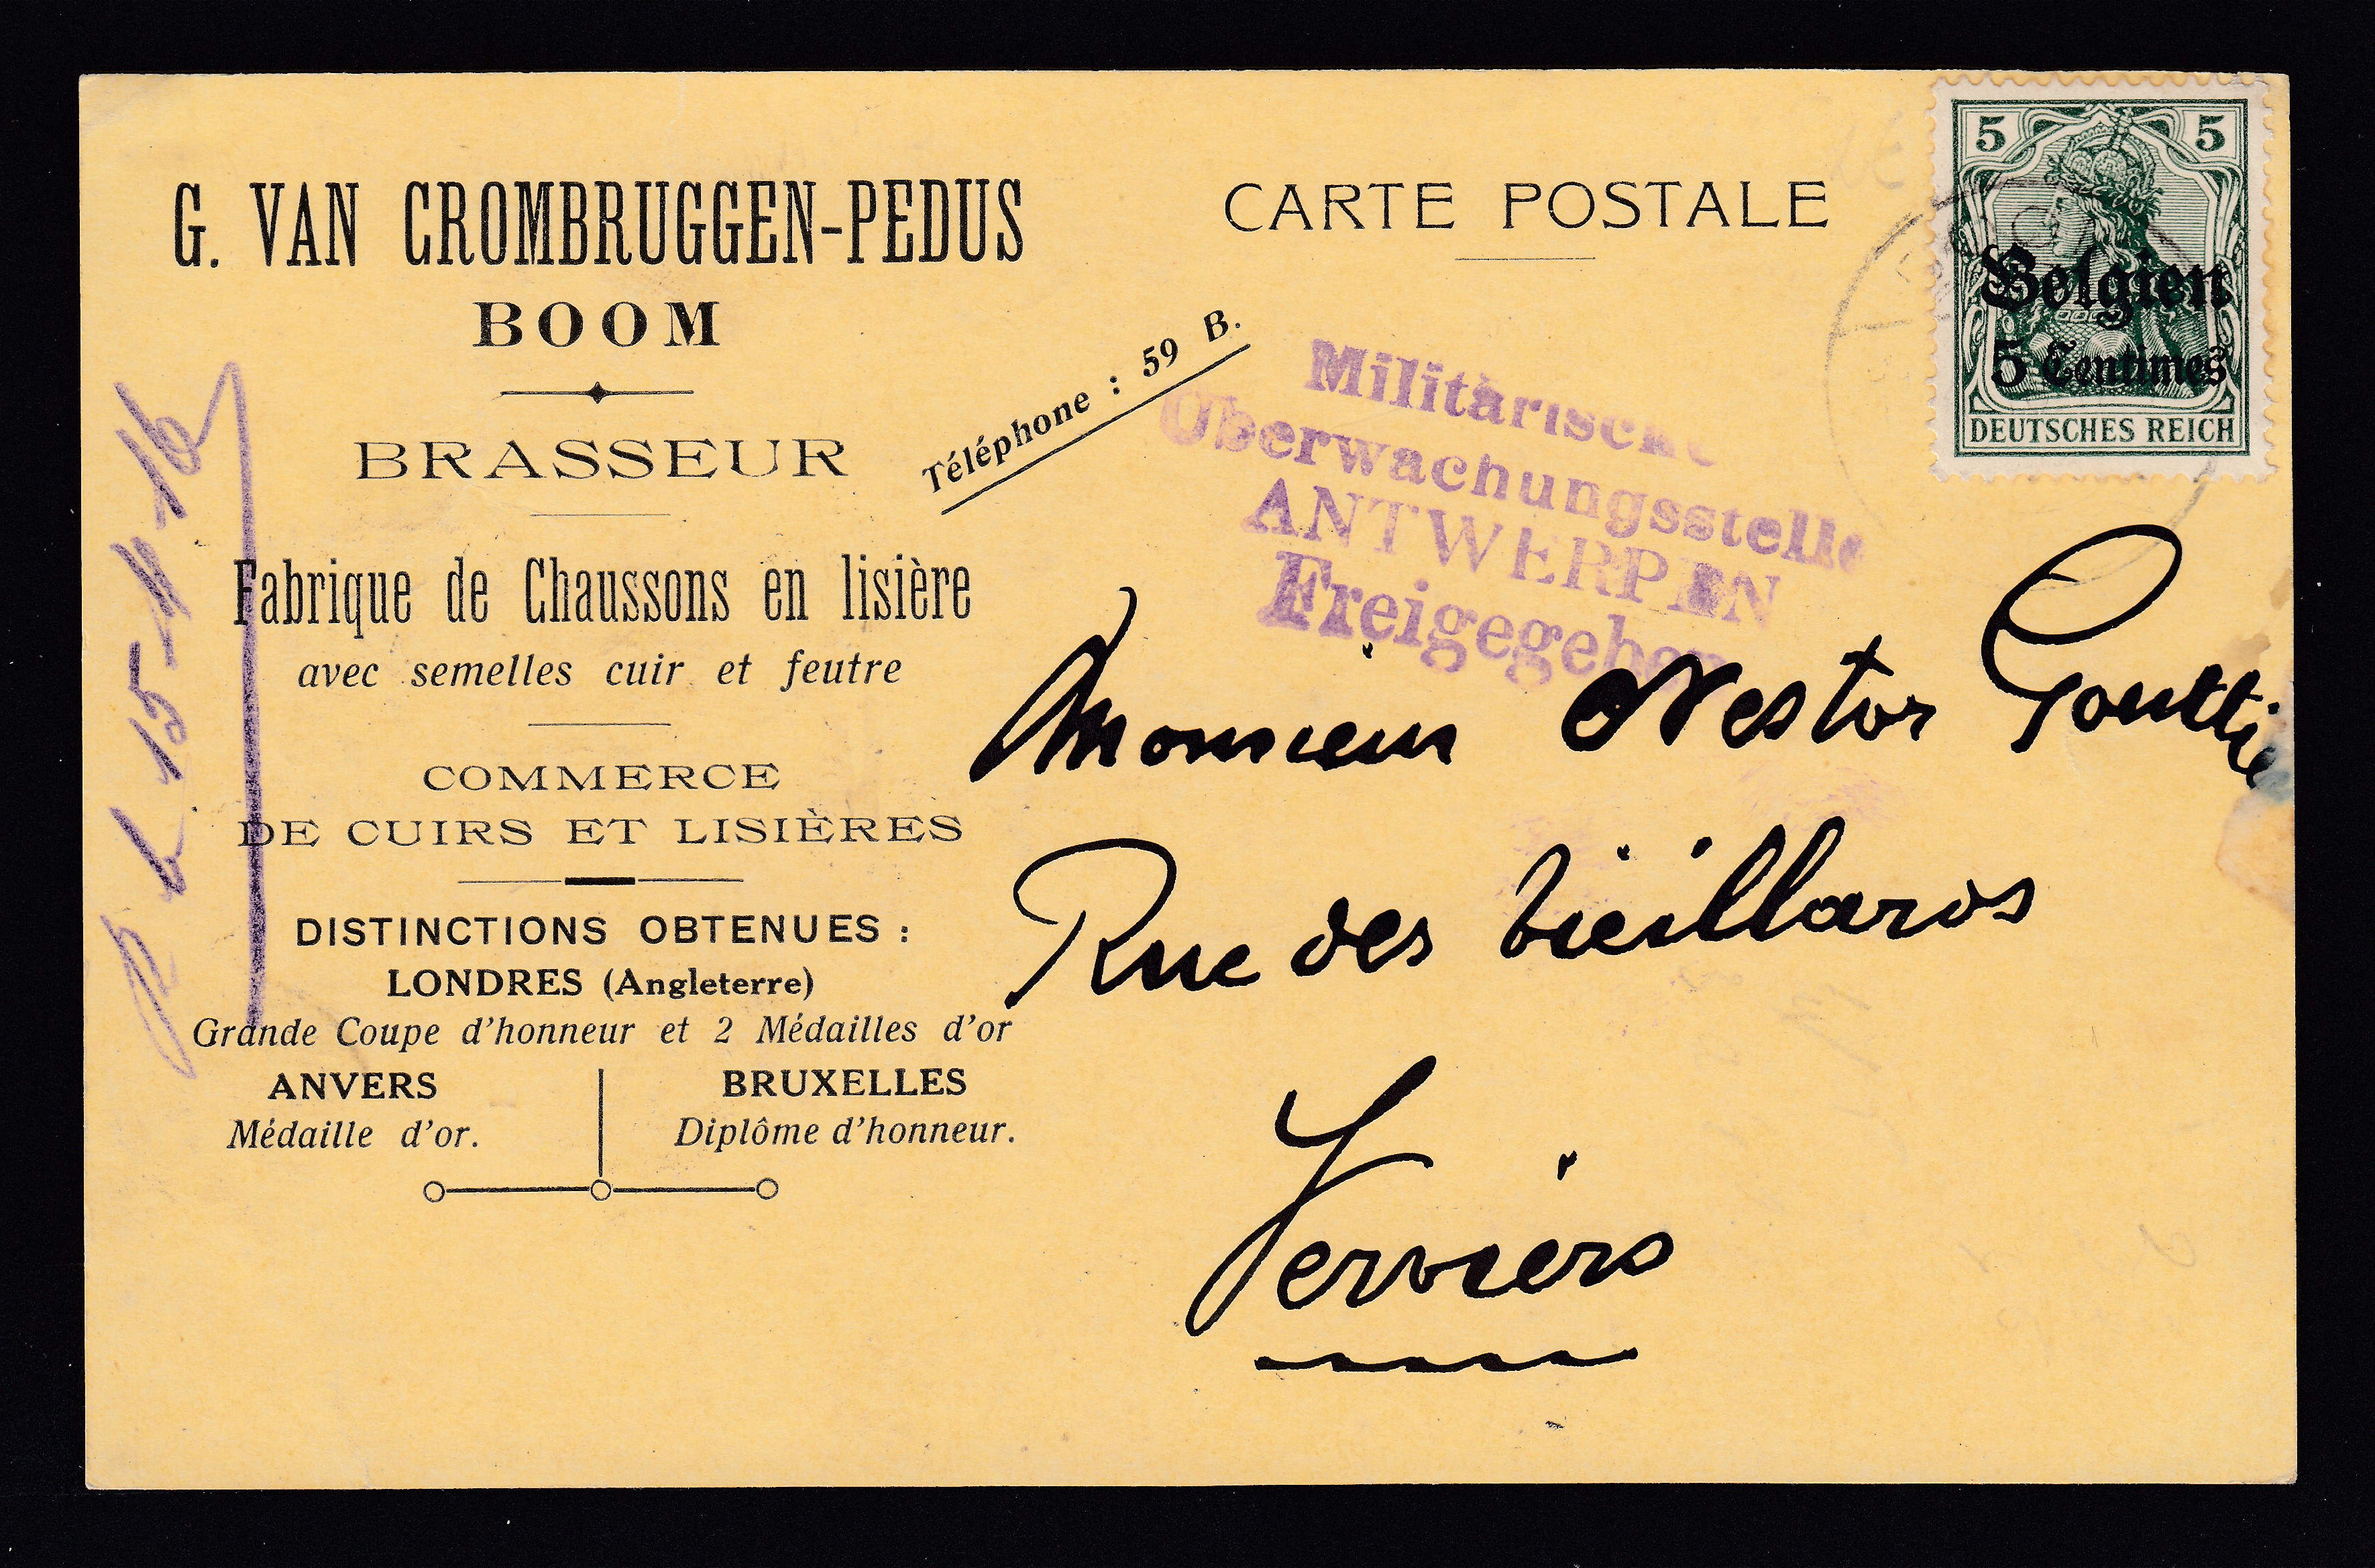 G. VAN CROMBRUGGEN-PEDUS
BOOM
BRASSEUR
Téléphone : 59 B.
Fabrique de Chaussons en lisière
avec semelles cuir et feutre
COMMERCE
DE CUIRS ET LISIÈRES
DISTINCTIONS OBTENUES :
LONDRES (Angleterre)
Grande Coupe d'honneur et 2 Médailles d'or
ANVERS
Médaille d'or.
BRUXELLES
Diplôme d'honneur.
15-11-16
CARTE POSTALE
5 5
Belgien
5 Centimes
DEUTSCHES REICH
Militärische
Überwachungsstelle
ANTWERPEN
Freigegeben
Monsieur Nestor
Rue des Vieillards
Verviers